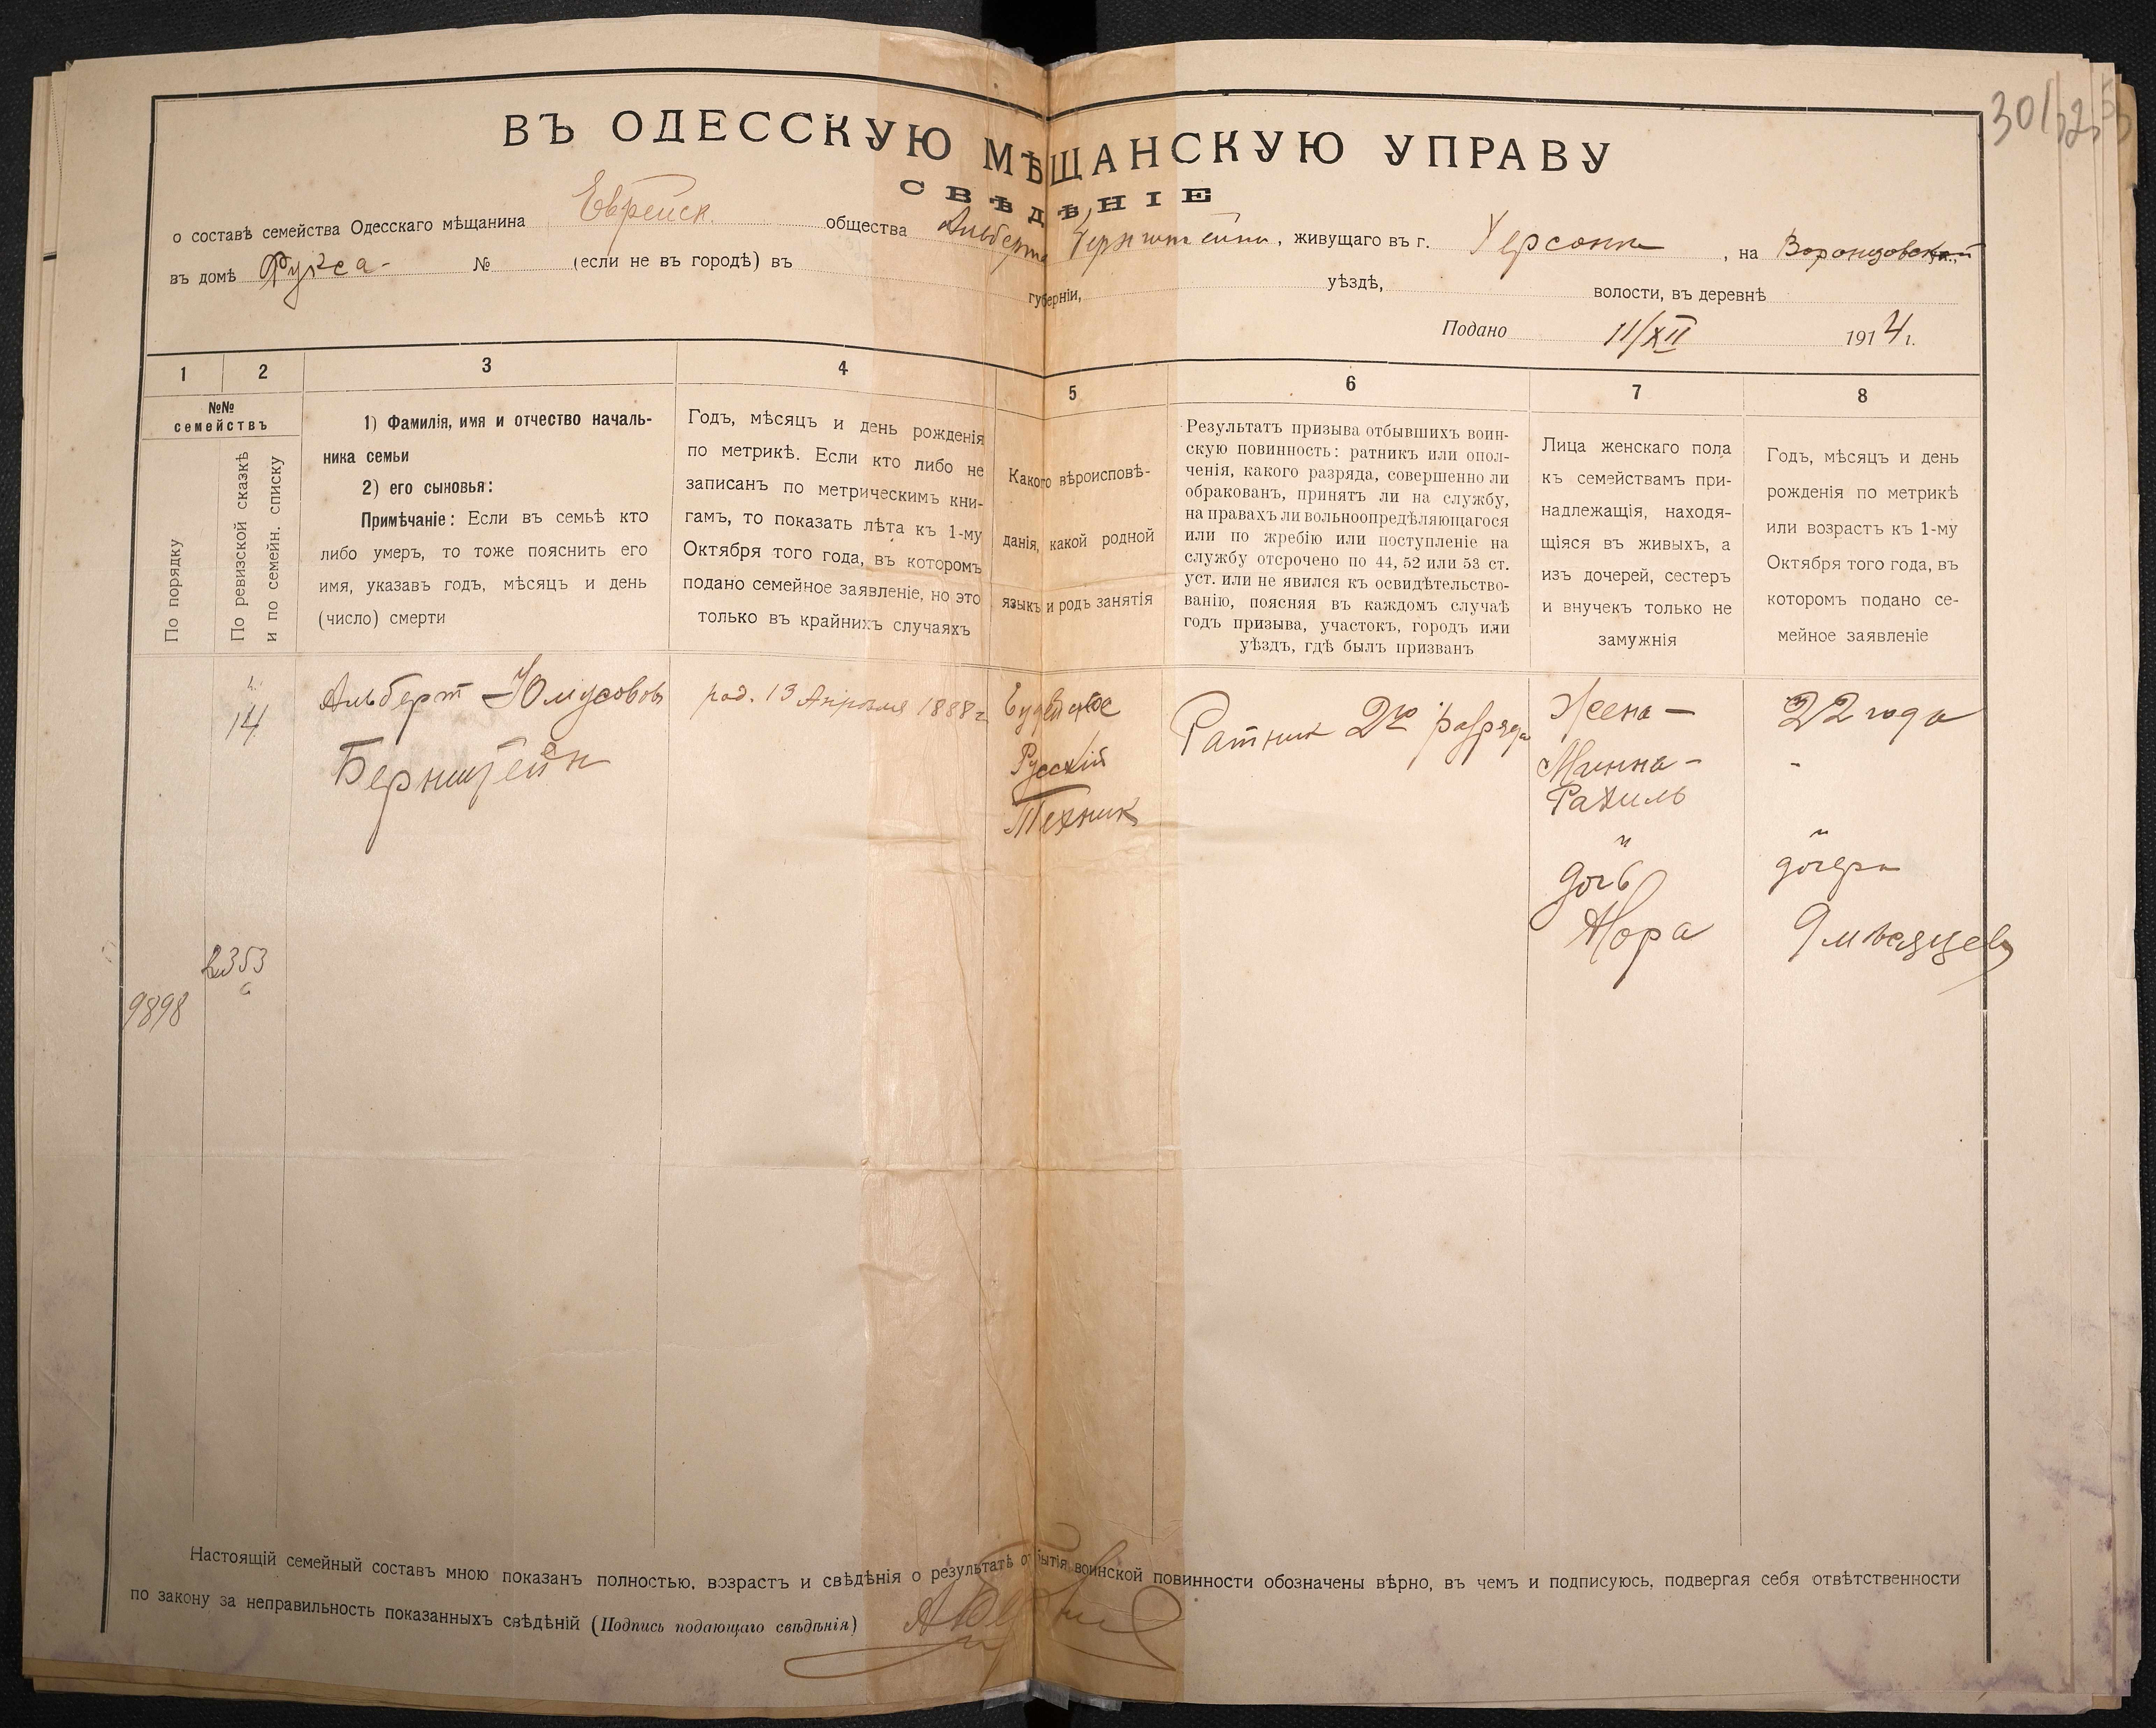 ВЪ ОДЕССКУЮ МѢЩАНСКУЮ УПРАВУ
СВѢДѢНІЕ
о составѣ семейства Одесскаго мѣщанина Еврейск. общества Альберта Бернштейна, живущаго въ г. Херсонѣ, на Воронцовской
въ домѣ Фукса № (если не въ городѣ) въ губерніи, уѣздѣ, волости, въ деревнѣ
Подано 11/XII 1914 г.
1 2 3 4 5 6 7 8
№№
семействъ
По порядку
По ревизской сказкѣ
и по семейн. списку
1) Фамилія, имя и отчество началь-
ника семьи
2) его сыновья:
Примѣчаніе: Если въ семьѣ кто
либо умеръ, то тоже пояснить его
имя, указавъ годъ, мѣсяцъ и день
(число) смерти
Годъ, мѣсяцъ и день рожденія
по метрикѣ. Если кто либо не
записанъ по метрическимъ кни-
гамъ, то показать лѣта къ 1-му
Октября того года, въ которомъ
подано семейное заявленіе, но это
только въ крайнихъ случаяхъ
Какого вѣроисповѣ-
данія, какой родной
языкъ и родъ занятія
Результатъ призыва отбывшихъ воин-
скую повинность: ратникъ или опол-
ченія, какого разряда, совершенно ли
обракованъ, принятъ ли на службу,
на правахъ ли вольноопредѣляющагося
или по жребію или поступленіе на
службу отсрочено по 44, 52 или 53 ст.
уст. или не явился къ освидѣтельство-
ванію, поясняя въ каждомъ случаѣ
годъ призыва, участокъ, городъ или
уѣздъ, гдѣ былъ призванъ
Лица женскаго пола
къ семействамъ при-
надлежащія, находя-
щіяся въ живыхъ, а
изъ дочерей, сестеръ
и внучекъ только не
замужнія
Годъ, мѣсяцъ и день
рожденія по метрикѣ
или возрастъ къ 1-му
Октября того года, въ
которомъ подано се-
мейное заявленіе
14
Альберт
Бернштейн
род. 13 Апрѣля 1888 г.
Іудейское
Русскій
Техник
Ратник 2го разряда
Жена -
Минна -
Рахиль
и
дочь
Нора
22 года
-
и
дочери
9 мѣсяцев
353
9898
Настоящій семейный составъ мною показанъ полностью, возрастъ и свѣдѣнія о результатѣ отбытія воинской повинности обозначены вѣрно, въ чемъ и подписуюсь, подвергая себя отвѣтственности
по закону за неправильность показанныхъ свѣдѣній (Подпись подающаго свѣдѣнія)